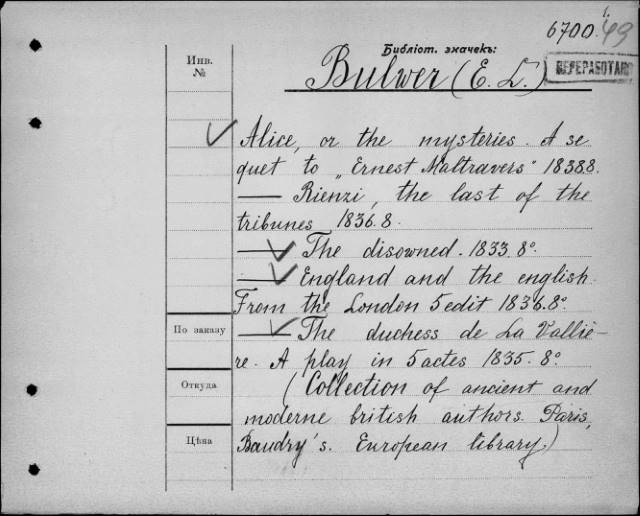 6700.49
1.
Инв.
№
Библіот. значекъ:
ПЕРЕРАБОТАНО
Bulwer (E. L.)
Alice, or the mysteries. A se
quet to „Ernest Maltravers" 1838.8.
— Rienzi, the last of the
tribunes 1836.8.
— The disowned. 1833.8°.
— England and the english.
From the London 5 edit 1836.8°.
По заказу
— The duchess de La Valliè-
re. A play in 5 actes 1835. 8°.
Откуда
(Collection of ancient and
moderne british authors. Paris,
Цѣна
Baudry's. European library.)